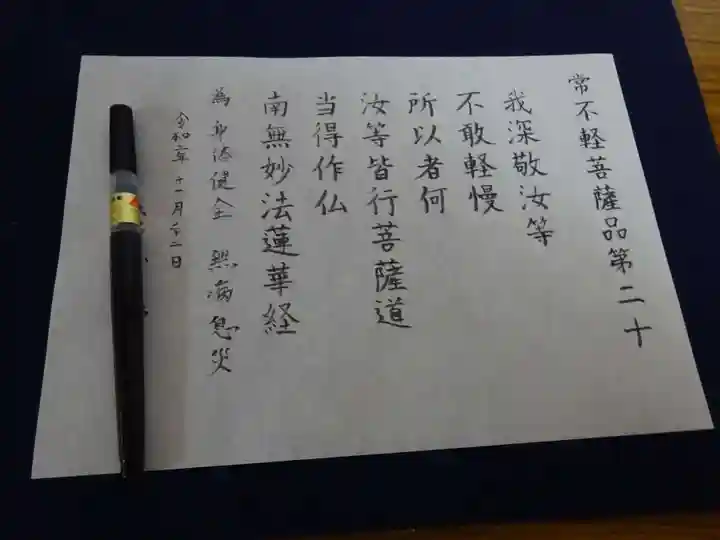 常不軽菩薩品第二十
我深敬汝等
不敢軽慢
所以者何
汝等皆行菩薩道
当得作仏
南無妙法蓮華経
為 身体健全 無病息災
令和 年 十一月 二十二日